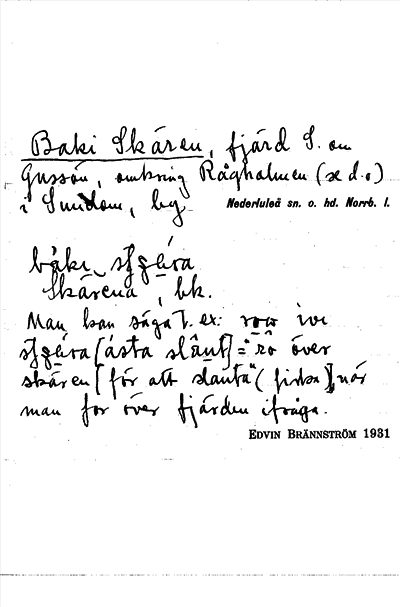 Baki Skären, fjärd S. om
Gussön, omkring Rågholmen (se d.o)
i Sundom, by.
Nederluleå sn. o. hd. Norrb. l.
Skärena, bk.
Man kan säga t. ex: row ivi
[ásta slânt] = "ro över
skären [för att slanta" (fiska)], når
man for över fjärden ifråga.
EDVIN BRÄNNSTRÖM 1931